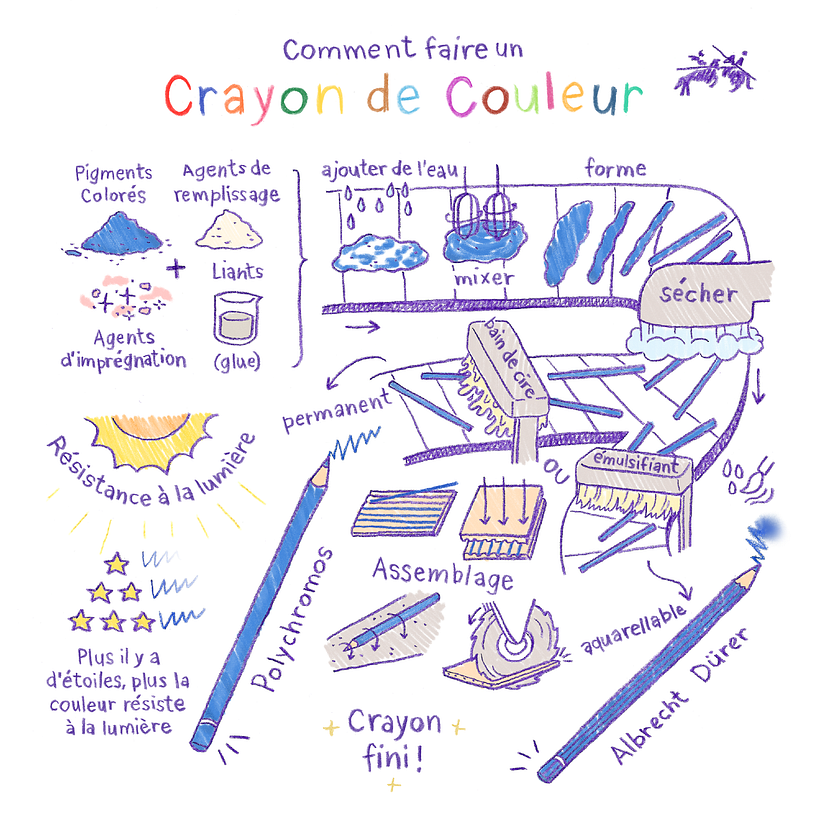 Comment faire un
Crayon de Couleur
Pigments
Colorés
Agents de
remplissage
+
Liants
Agents
d'imprégnation
(glue)
ajouter de l'eau
mixer
forme
sécher
bain de cire
permanent
ou
émulsifiant
Résistance à la lumière
Plus il y a
d'étoiles, plus la
couleur résiste
à la lumière
Polychromos
Assemblage
aquarellable
Albrecht Dürer
Crayon
fini!